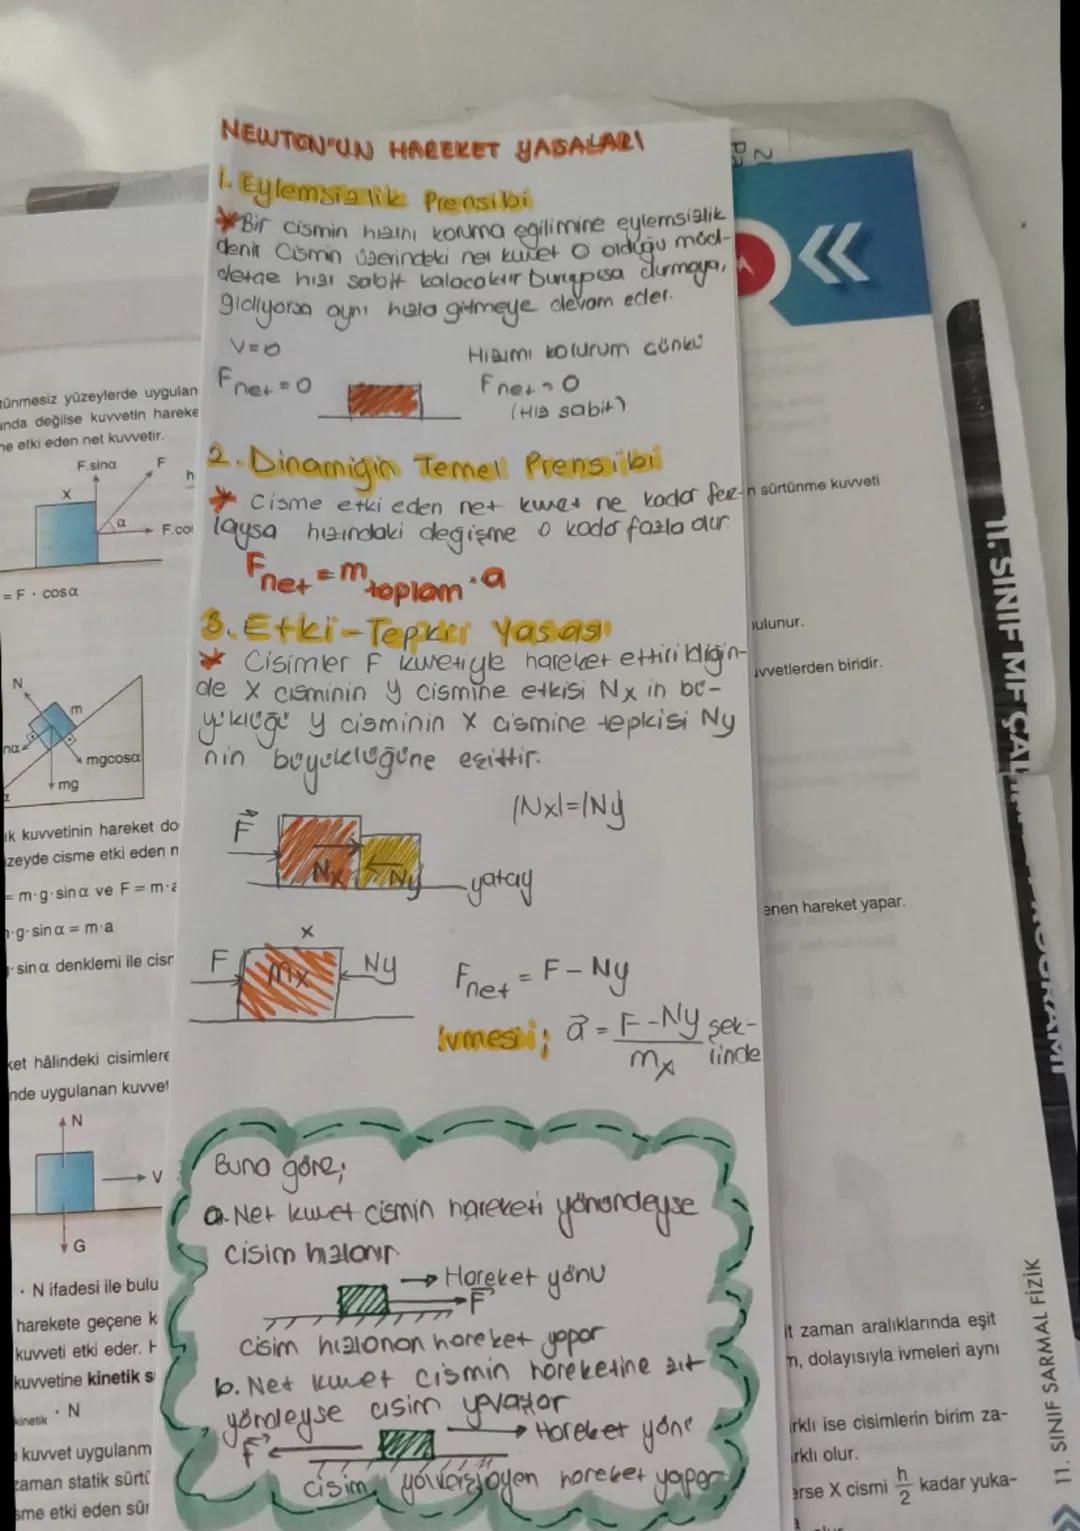 NEWTON'UN HAREKET YASALARI
1. Eylemsizlik Prensibi
* Bir cismin hızını koruma eğilimine eylemsizlik
denir Cismin üzerindeki net kuvvet 0 olduğu müd-
detçe hızı sabit kalacaktır duruyorsa durmaya,
gidiyorsa aynı hızla gitmeye devam eder.
V=0
Hızımı korurum çünkü
Fnet=0
Fnet=0
(Hız sabit)
2. Dinamiğin Temel Prensibi
* Cisme etki eden net kuvvet ne kadar faz-
laysa hızındaki değişme o kadar fazla olur.
Fnet=mtoplam.a
3. Etki-Tepki Yasası
* Cisimler F kuvvetiyle hareket ettirildiğin-
de X cisminin y cismine etkisi Nx in bü-
yüklüğü y cisminin x cismine tepkisi Ny
nin büyüklüğüne eşittir.
|Nx|=|Ny|
F
Nx
Ny
yatay
x
F
mx
Ny
Fnet = F-Ny
İvmesi; a = F-Ny / mx şek-
linde
Buna göre;
a. Net kuvvet cismin hareketi yönündeyse
cisim hızlanır
→ Hareket yönü
F
cisim hızlanan hareket yapar
b. Net kuvvet cismin hareketine zıt
yöndeyse cisim yavaşlar
F
→ Hareket yönü
cisim yavaşlayan hareket yapar
tünmesiz yüzeylerde uygulan
nda değilse kuvvetin hareke
ne etki eden net kuvvetir.
F.sinα
F
X
α
F.co
= F · cosα
N
m
mgcosα
mg
ık kuvvetinin hareket do
zeyde cisme etki eden n
= m·g·sinα ve F = m·a
·g·sinα = m·a
·sinα denklemi ile cisr
ket hâlindeki cisimlere
nde uygulanan kuvvet
N
V
G
· N ifadesi ile bulu
harekete geçene k
kuvveti etki eder. H
kuvvetine kinetik s
kinetik · N
kuvvet uygulanm
zaman statik sürtü
sme etki eden sür
n sürtünme kuvveti
bulunur.
uvvetlerden biridir.
enen hareket yapar.
it zaman aralıklarında eşit
n, dolayısıyla ivmeleri aynı
rklı ise cisimlerin birim za-
rklı olur.
erse X cismi h/2 kadar yuka-
11. SINIF MF ÇAL
11. SINIF SARMAL FİZİK